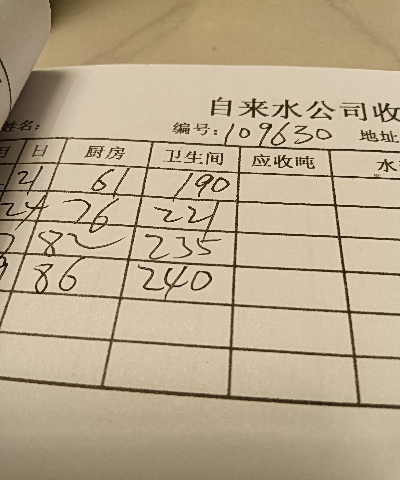 自来水公司收
姓名: 编号: 109630 地址
月 日 厨房 卫生间 应收吨 水
21 61 190
24 76 221
82 235
86 240